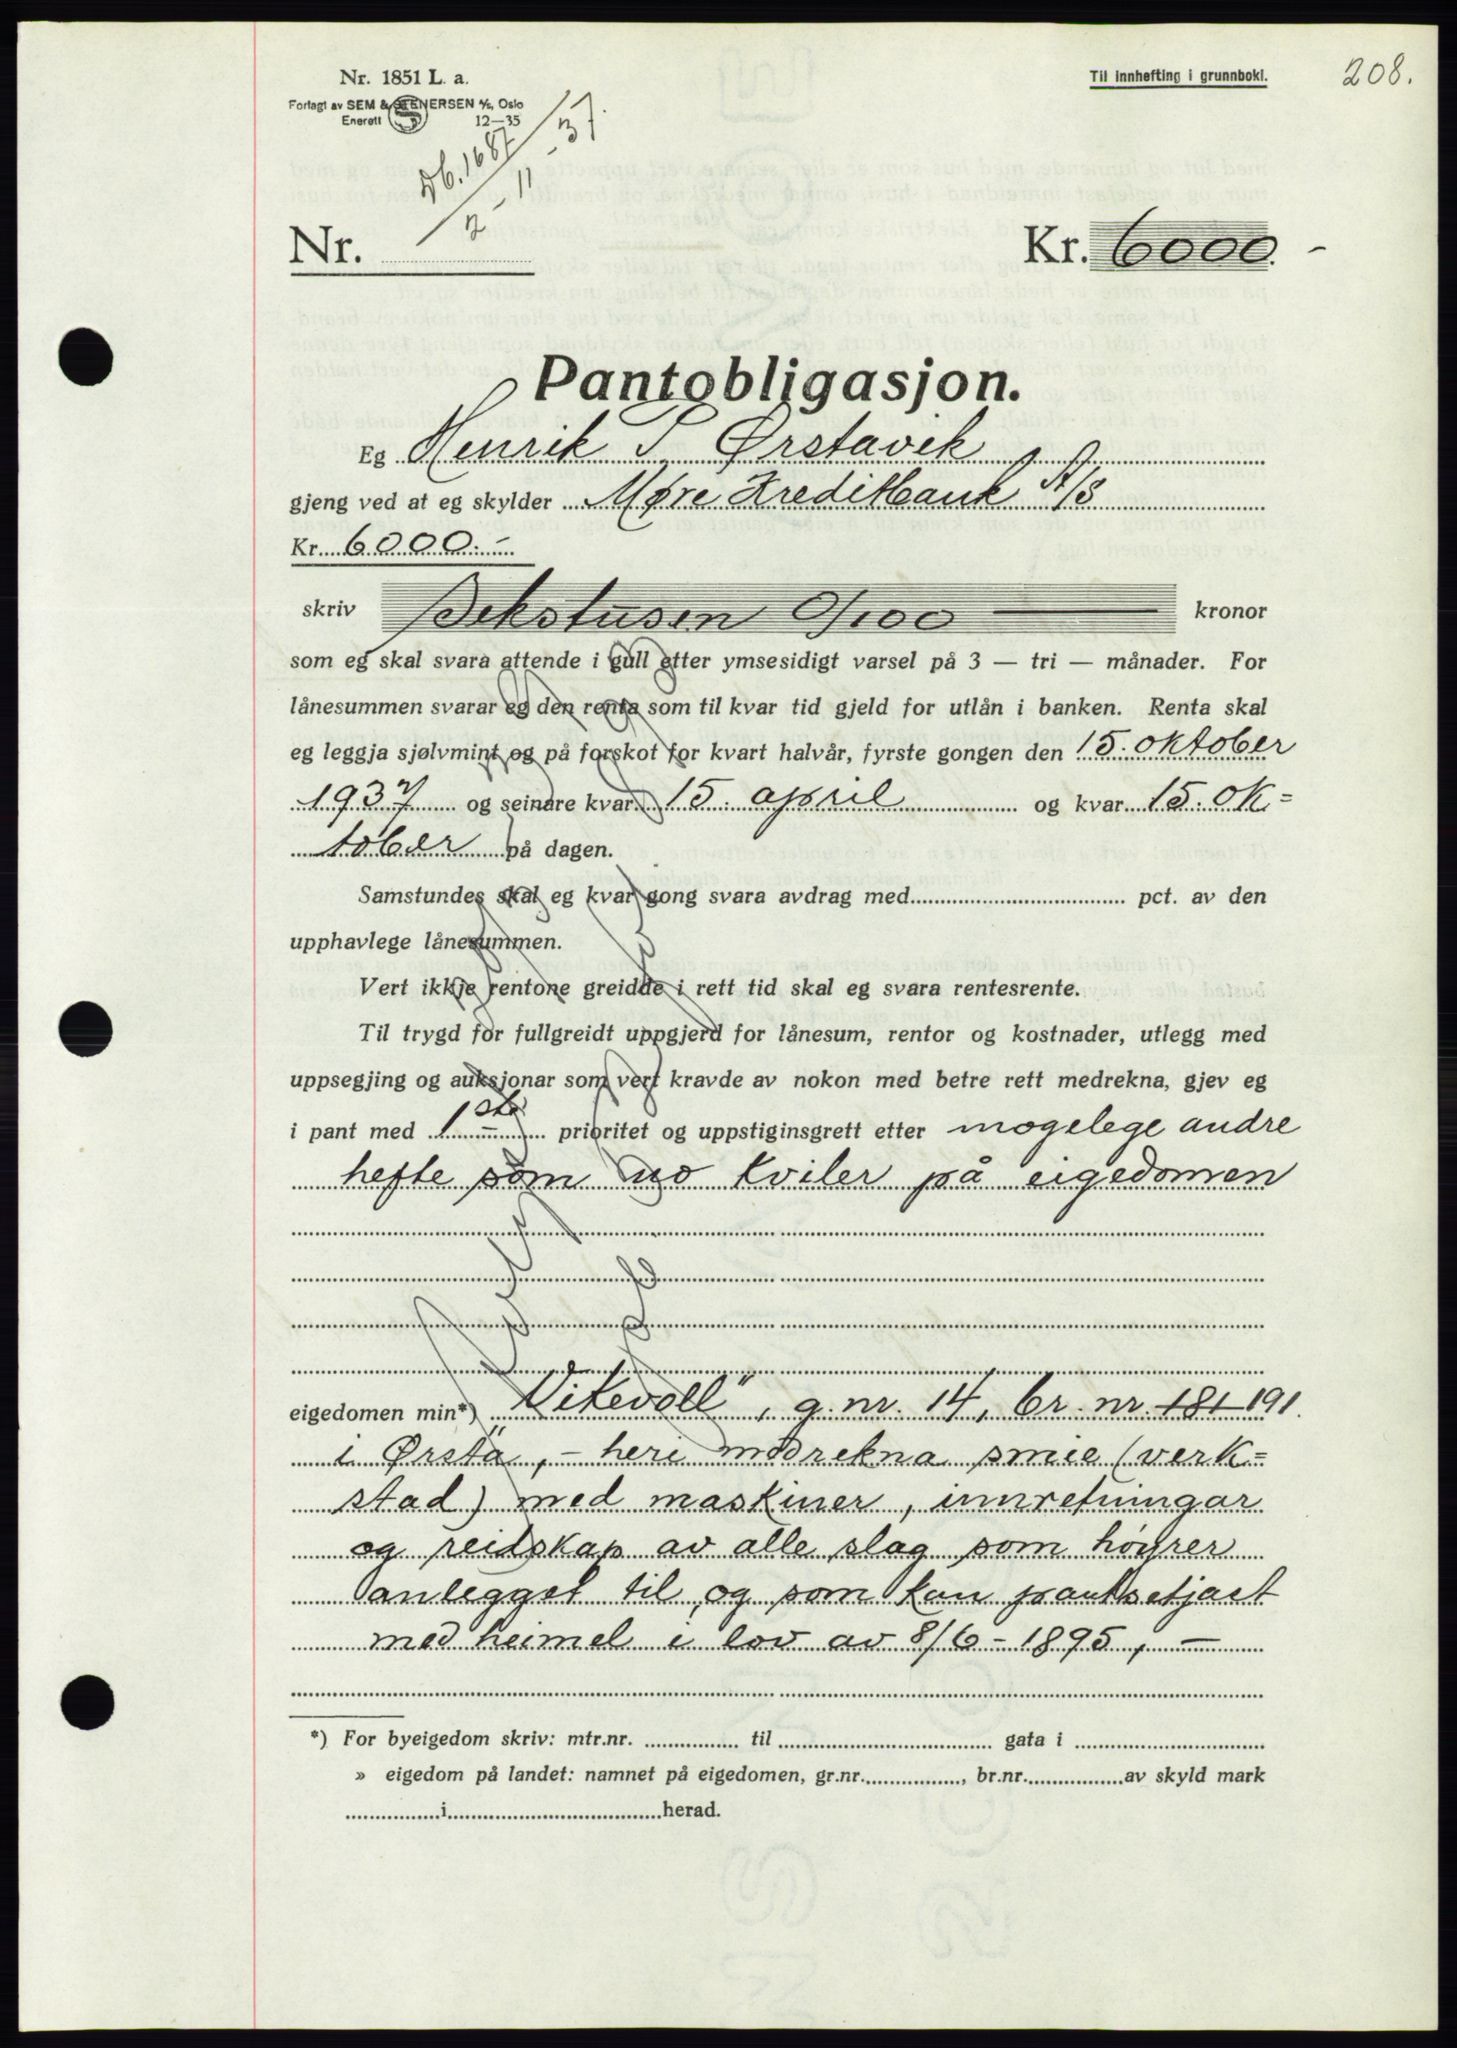 Nr. 1851 L. a.
Til innhefting i grunnboki.
208.
Forlagt av SEM & STENERSEN A/S, Oslo
Enerett 12—35
Db. 1687
2 - 11 - 37.
Nr.
Kr. 6000. -
Pantobligasjon.
Eg Henrik S. Ørstavik
gjeng ved at eg skylder Møre Kreditbank A/S
Kr. 6000.-
skriv Sekstusen 0/100 — kronor
som eg skal svara attende i gull etter ymsesidigt varsel på 3 — tri — månader. For
lånesummen svarar eg den renta som til kvar tid gjeld for utlån i banken. Renta skal
eg leggja sjølvmint og på forskot for kvart halvår, fyrste gongen den 15. oktober
1937 og seinare kvar 15. april og kvar 15. ok=
tober på dagen.
Samstundes skal eg kvar gong svara avdrag med pct. av den
upphavlege lånesummen.
Vert ikkje rentone greidde i rett tid skal eg svara rentesrente.
Til trygd for fullgreidt uppgjerd for lånesum, rentor og kostnader, utlegg med
uppsegjing og auksjonar som vert kravde av nokon med betre rett medrekna, gjev eg
i pant med 1ste prioritet og uppstiginsgrett etter mogelege andre
hefte som no kviler på eigedomen
eigedomen min*) "Vikevoll", g.nr. 14, br. nr. 181 191.
i Ørsta, - heri medrekna smie (verk=
stad) med maskiner, innretningar
og reidskap av alle slag som høyrer
anlegget til, og som kan pantsetjast
med heimel i lov av 8/6 - 1895, —
*) For byeigedom skriv: mtr.nr. til gata i
» eigedom på landet: namnet på eigedomen, gr.nr. , br.nr. av skyld mark
i herad.